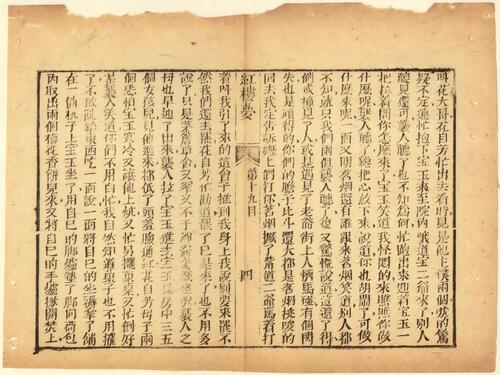 叫花大哥花自芳忙出去看時見是他主僕兩個唬的驚
疑不定連忙抱下寶玉來至院內嚷道寶二爺來了別人
聽見還可襲人聽了也不知爲何忙跑出來迎着寶玉一
把拉着問你怎麽來了寶玉笑道我怪悶的來瞧瞧你做
什麽呢襲人聽了纔把心放下來說道你也胡鬧了可做
什麽來呢一面又問茗烟還有誰跟來茗烟笑道別人都
不知就只我們兩個襲人聽了復又驚慌說道這還了得
倘或撞見了人或是遇見了老爺街上人擠馬碰有個閃
失也是頑得的你們的膽子比斗還大都是茗烟挑唆的
回去我定告訴嬷嬷們打你茗烟撅了嘴道二爺罵着打
紅樓夢
第十九囘
四
着呌我引了來的這會子推到我身上我說別要來罷不
然我們還去罷花自芳忙勸道罷了已是來了也不用多
說了只是茅簷草舍又窄又不干淨爺怎麽坐呢襲人之
母也早迎了出來襲人拉了寶玉進去寶玉見房中三五
個女孩兒見他進來都低了頭羞臉通紅花自芳母子兩
個恐怕寶玉冷又讓他上炕又忙另擺菓桌又忙倒好
茶襲人笑道你們不用白忙我自然知道菓子也不用擺
了不敢亂給東西吃一面說一面將自巳的坐褥拿了鋪
在一個杌子上寶玉坐了用自巳的脚爐墊了脚向荷包
內取出兩個梅花香餅兒來又將自巳的手爐掀開焚上